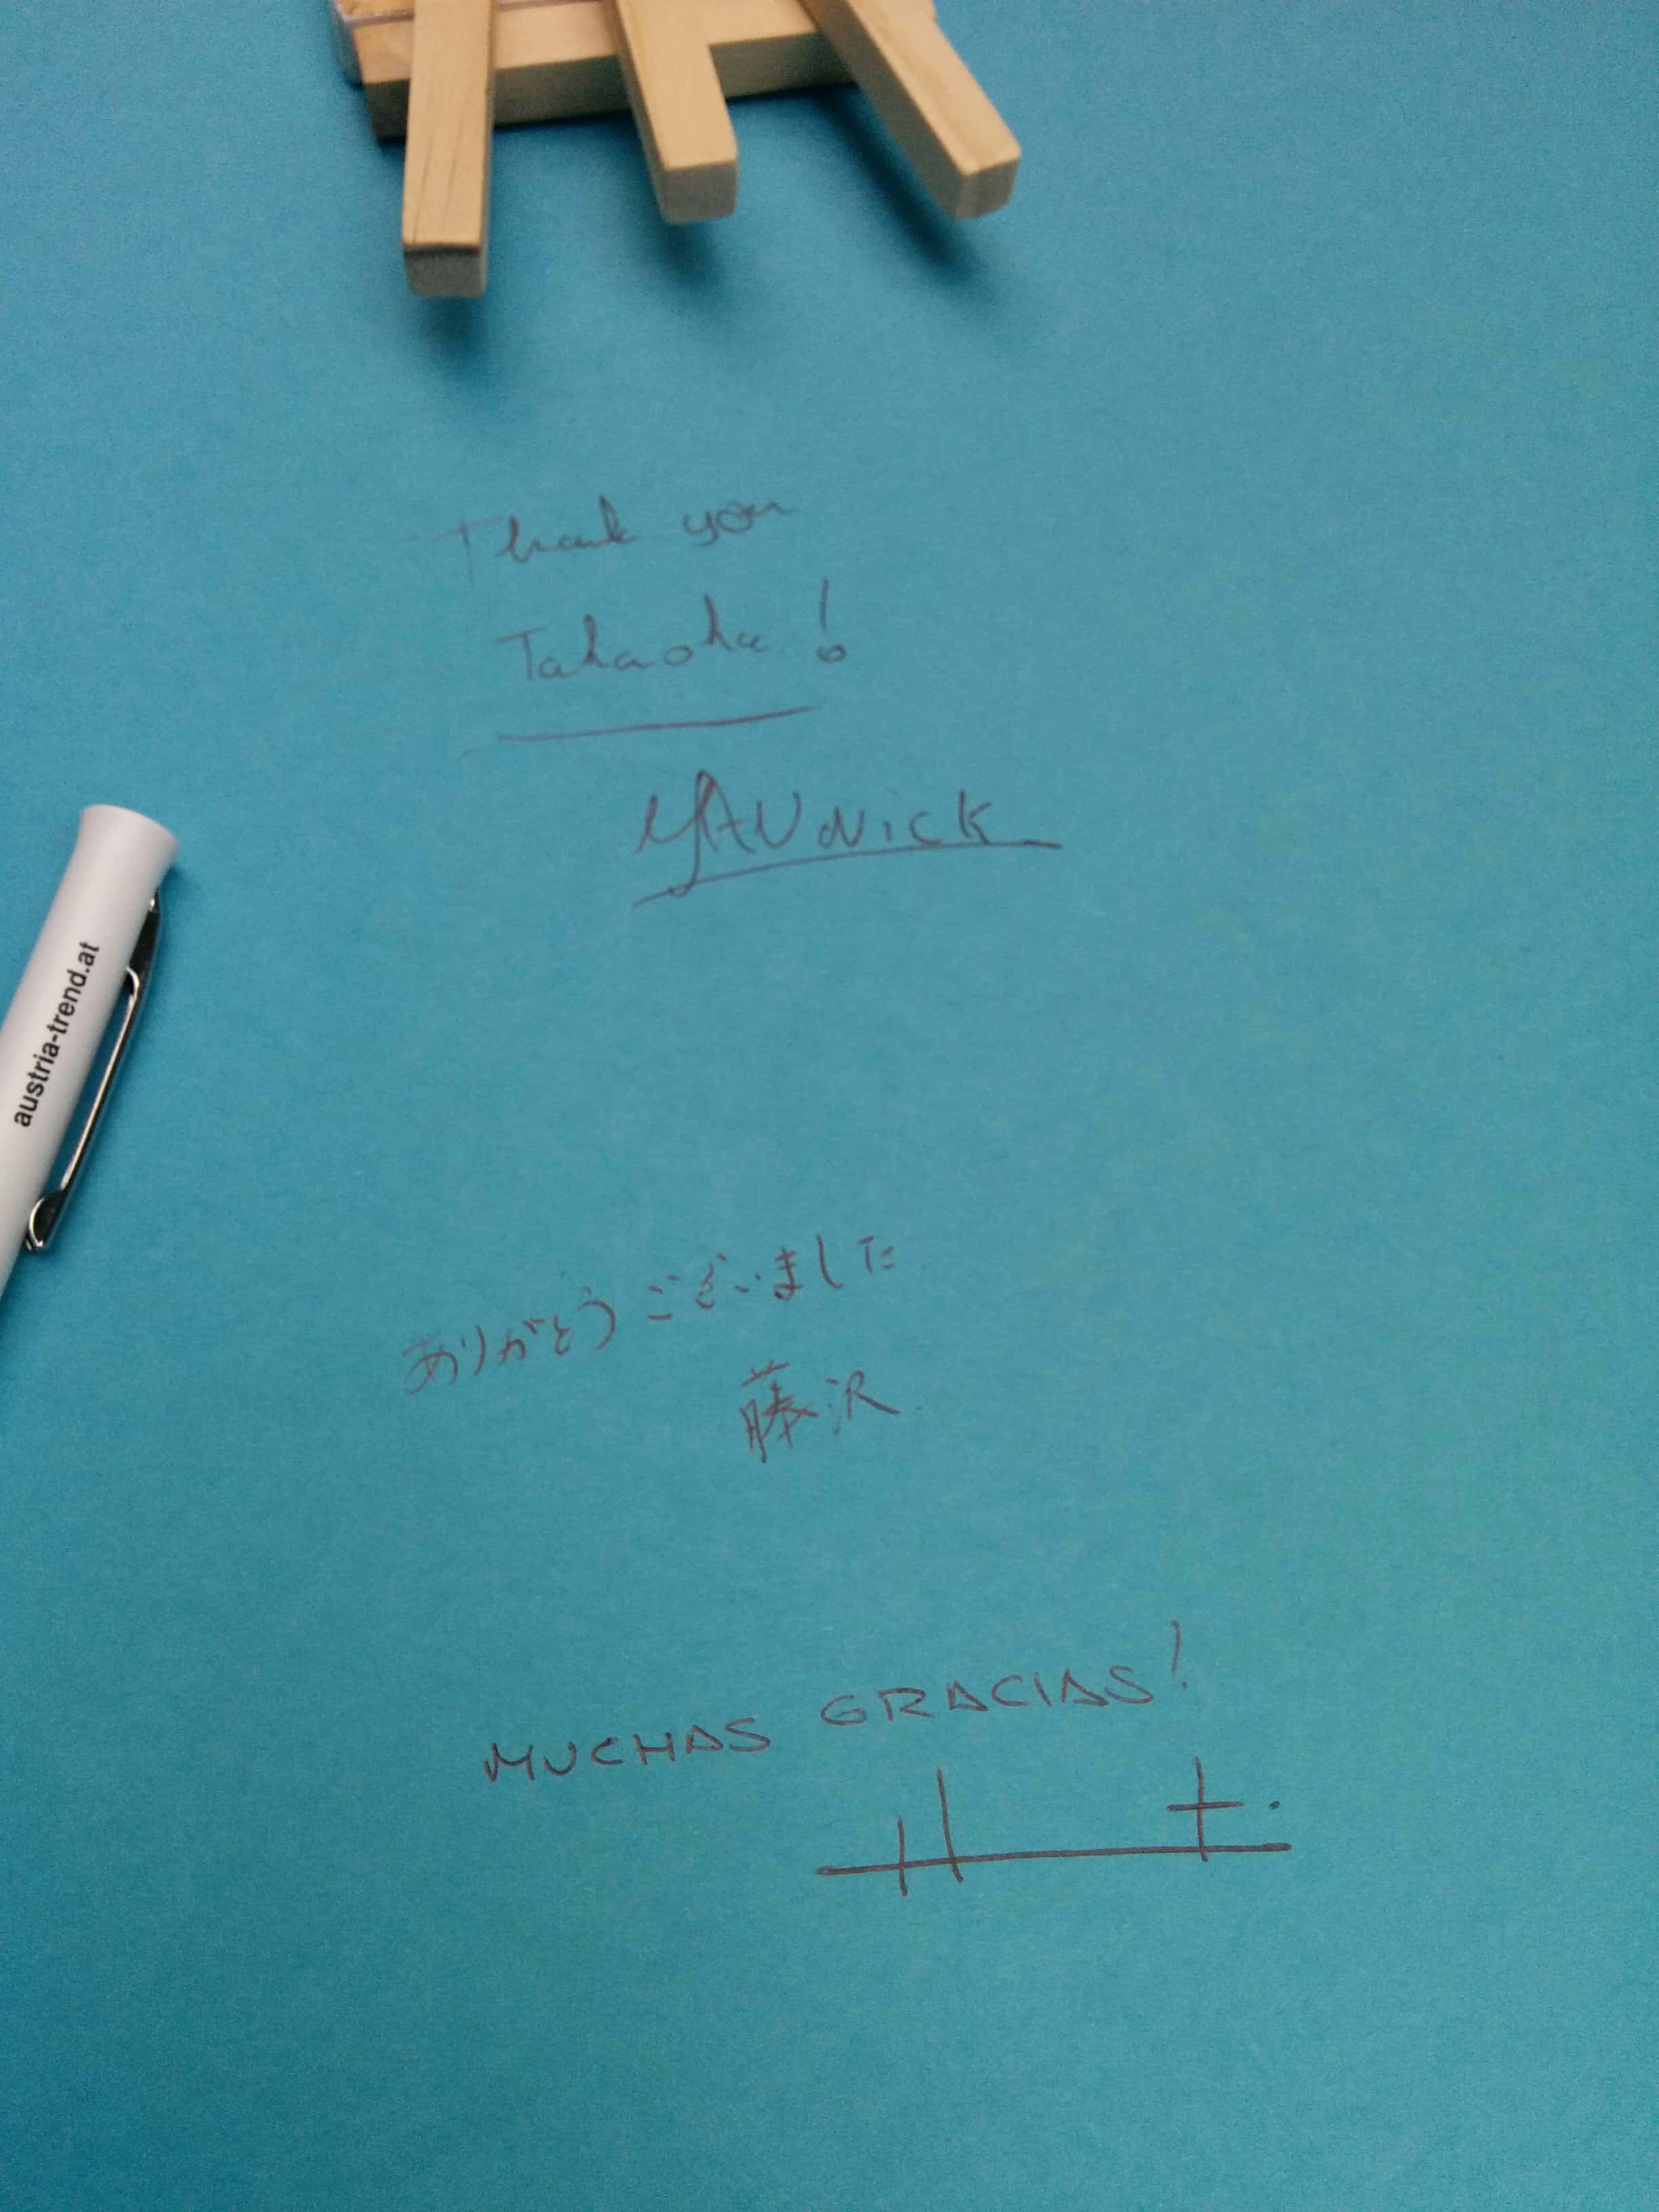 Thank you
Takaoka!
YANNICK
austria-trend.at
ありがとうございました
藤沢
MUCHAS GRACIAS!